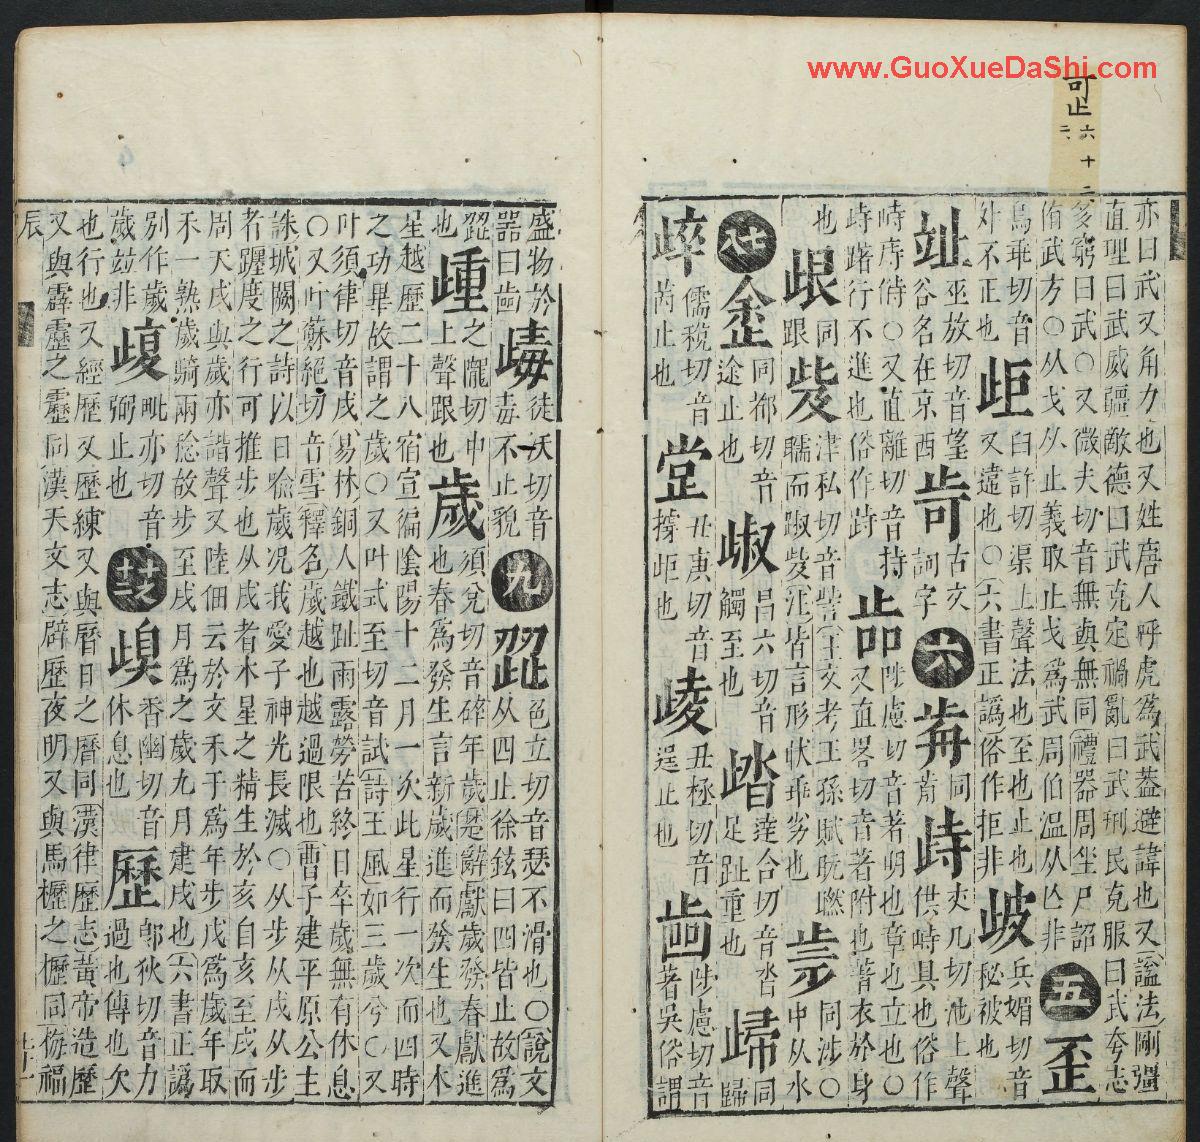 www.GuoXueDaShi.com
止
六十二
亦曰武又角力也又姓唐人呼虎爲武葢避諱也又諡法剛彊
直理曰武威疆敵德曰武克定禍亂曰武刑民克服曰武夸志
多窮曰武〇又微夫切音無與無同禮器周坐尸詔
侑武方〇从戈从止義取止戈爲武周伯温从亾非五歪
烏乖切音
歫臼許切渠上聲法也至也止也
又違也〇六書正譌俗作拒非
兵媚切音
秘被也
巫放切音望
谷名在京西
古文
訶字
六
歬同
歭丈几切池上聲
供歭具也俗作
峙庤偫〇又直離切音持
歭躇行不進也俗作跱
陟慮切音著明也章也立也〇
又直畧切音著附也著衣於身
也
䟘同
跟
津私切音
步同涉〇
中从水
七
八
同都切音
途止也
昌六切音
觸至也
達合切音沓
足趾重也
歸同
歸
儒稅切音
芮止也
丑庚切音
撑歫也
丑極切音
逞止也
陟慮切音
著吳俗謂
盛物於
器曰
徒沃切音
毒不止貌
九
歰色立切音瑟不滑也〇說文
从四止徐鉉曰四皆止故爲
歱之隴切中
上聲跟也
歲須兌切音碎年歲楚辭獻歲發春獻進
也春爲發生言新歲進而發生也又木
星越歷二十八宿宣徧陰陽十二月一次此星行一次而四時
之功畢故謂之歲〇又叶式至切音試詩王風如三歲兮〇又
叶須律切音戌易林銅人鐵趾雨露勞苦終日卒歲無有休息
〇又叶蘇絕切音雪釋名歲越也越過限也曹子建平原公主
誅城闕之詩以日喻歲况我愛子神光長滅〇从步从戌从步
者躔度之行可推步也从戌者木星之精生於亥自亥至戌而
周天戌與歲亦諧聲又陸佃云於文禾干爲年步戌爲歲年取
禾一熟歲騎兩稔故步至戌月爲之歲九月建戌也六書正譌
別作歲
歲竝非
毗亦切音
弼止也
香幽切音
休息也
歷郎狄切音力
過也傳也次
也行也又經歷又歷練又與曆日之曆同漢律歷志黃帝造歷
又與霹靂之靂同漢天文志辟歷夜明又與馬櫪之櫪同梅福
辰